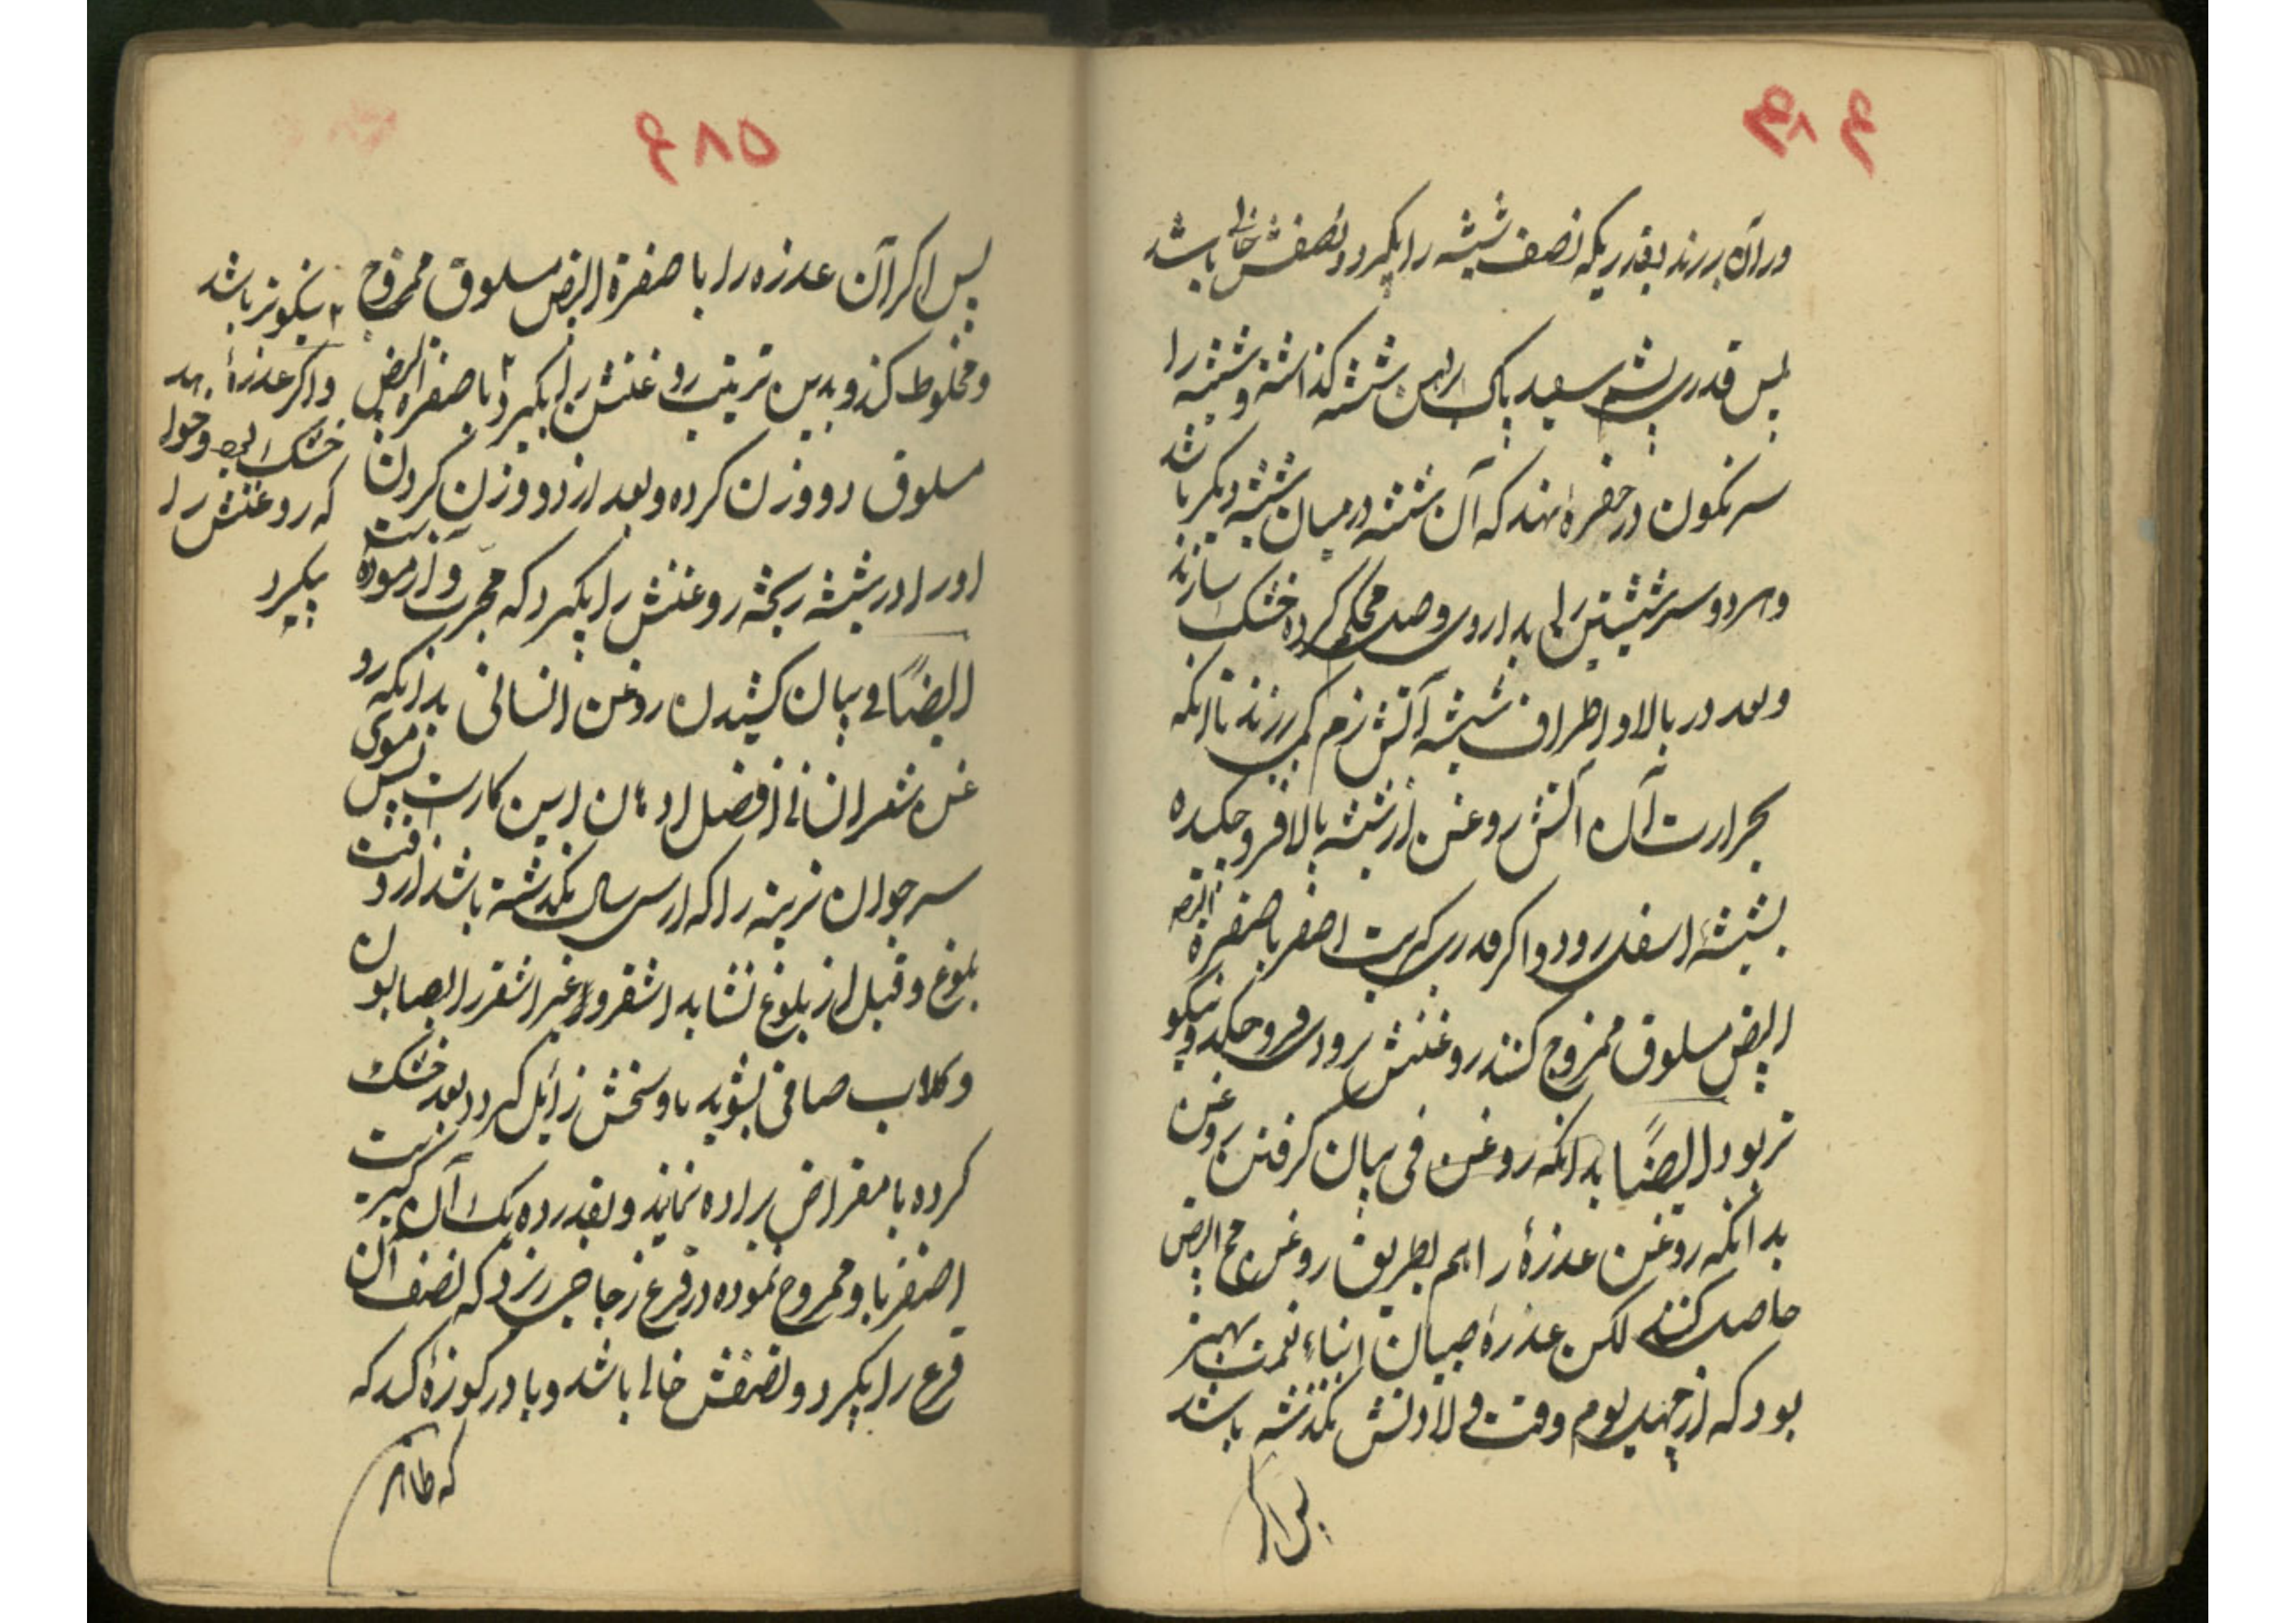 ۶۸۴
در آن ریزند بقدریکه نصف شیشه را بگیرد و نصفش خالی باشد
پس قدری پشم سفید پاک براس شیشه گذاشته و شیشه را
سرنگون در حفرۀ نهند که آن شیشه در میان شیشه دیگر باشد
و هر دو سر شیشتین را بداروی وصل محکم کرده خشک سازند
و بعد در بالا و اطراف شیشه آتش نرم کمی ریزند تا انکه
بحرارت آن آتش روغن از شیشه بالا فرو چکیده
بشیشۀ اسفل رود و اگر قدری کبریت اصفر با صفرة البیضه
البیض مسلوق ممزوج کنند روغنش بزودی فرو چکد و نیکو
تر بود ایضًا بدانکه روغن فی بیان گرفتن روغن
بدانکه روغن عذرۀ را هم بطریق روغن مح البیض
حاصل کنند لکن عذرۀ صبیان ابناء نعمت بهتر
بود که از چهل یوم وقت ولادتش نگذشته باشد
پس اگر
۶۸۵
پس اگر آن عذره را با صفرة البیض مسلوق ممزوج
و مخلوط کند و بدین ترتیب روغنش را بگیرد ۲ با صفره البیض
مسلوق دو وزن کرده و بعد از دو وزن کردن
او را در شیشه ریخته روغنش را بگیرد که مجرب و آزموده است
ایضًا فی بیان کشیدن روغن انسانی بدانکه رو
غن شعر انسانی از افضل ادهان این کارست پس موی
سر جوان نرینه را که از سی سال نگذشته باشد از وقت
بلوغ و قبل از بلوغ نشاید اشقر و غیر اشقر را بصابون
و کلاب صافی بشوید تا وسخش زائل گردد بعد خشک
کرده با مقراض براده نماید و بقدر ده یک آن کبریت
اصفر با و ممزوج نموده در قرع زجاجی ریزد که نصف آن
قرع را بگیرد و نصفش خالی باشد و یا در کوزۀ کند که
که ظاهر
۲ نیکوتر باشد
و اگر عذرۀ
خشک بود و خواهد
که روغنش را
بگیرد